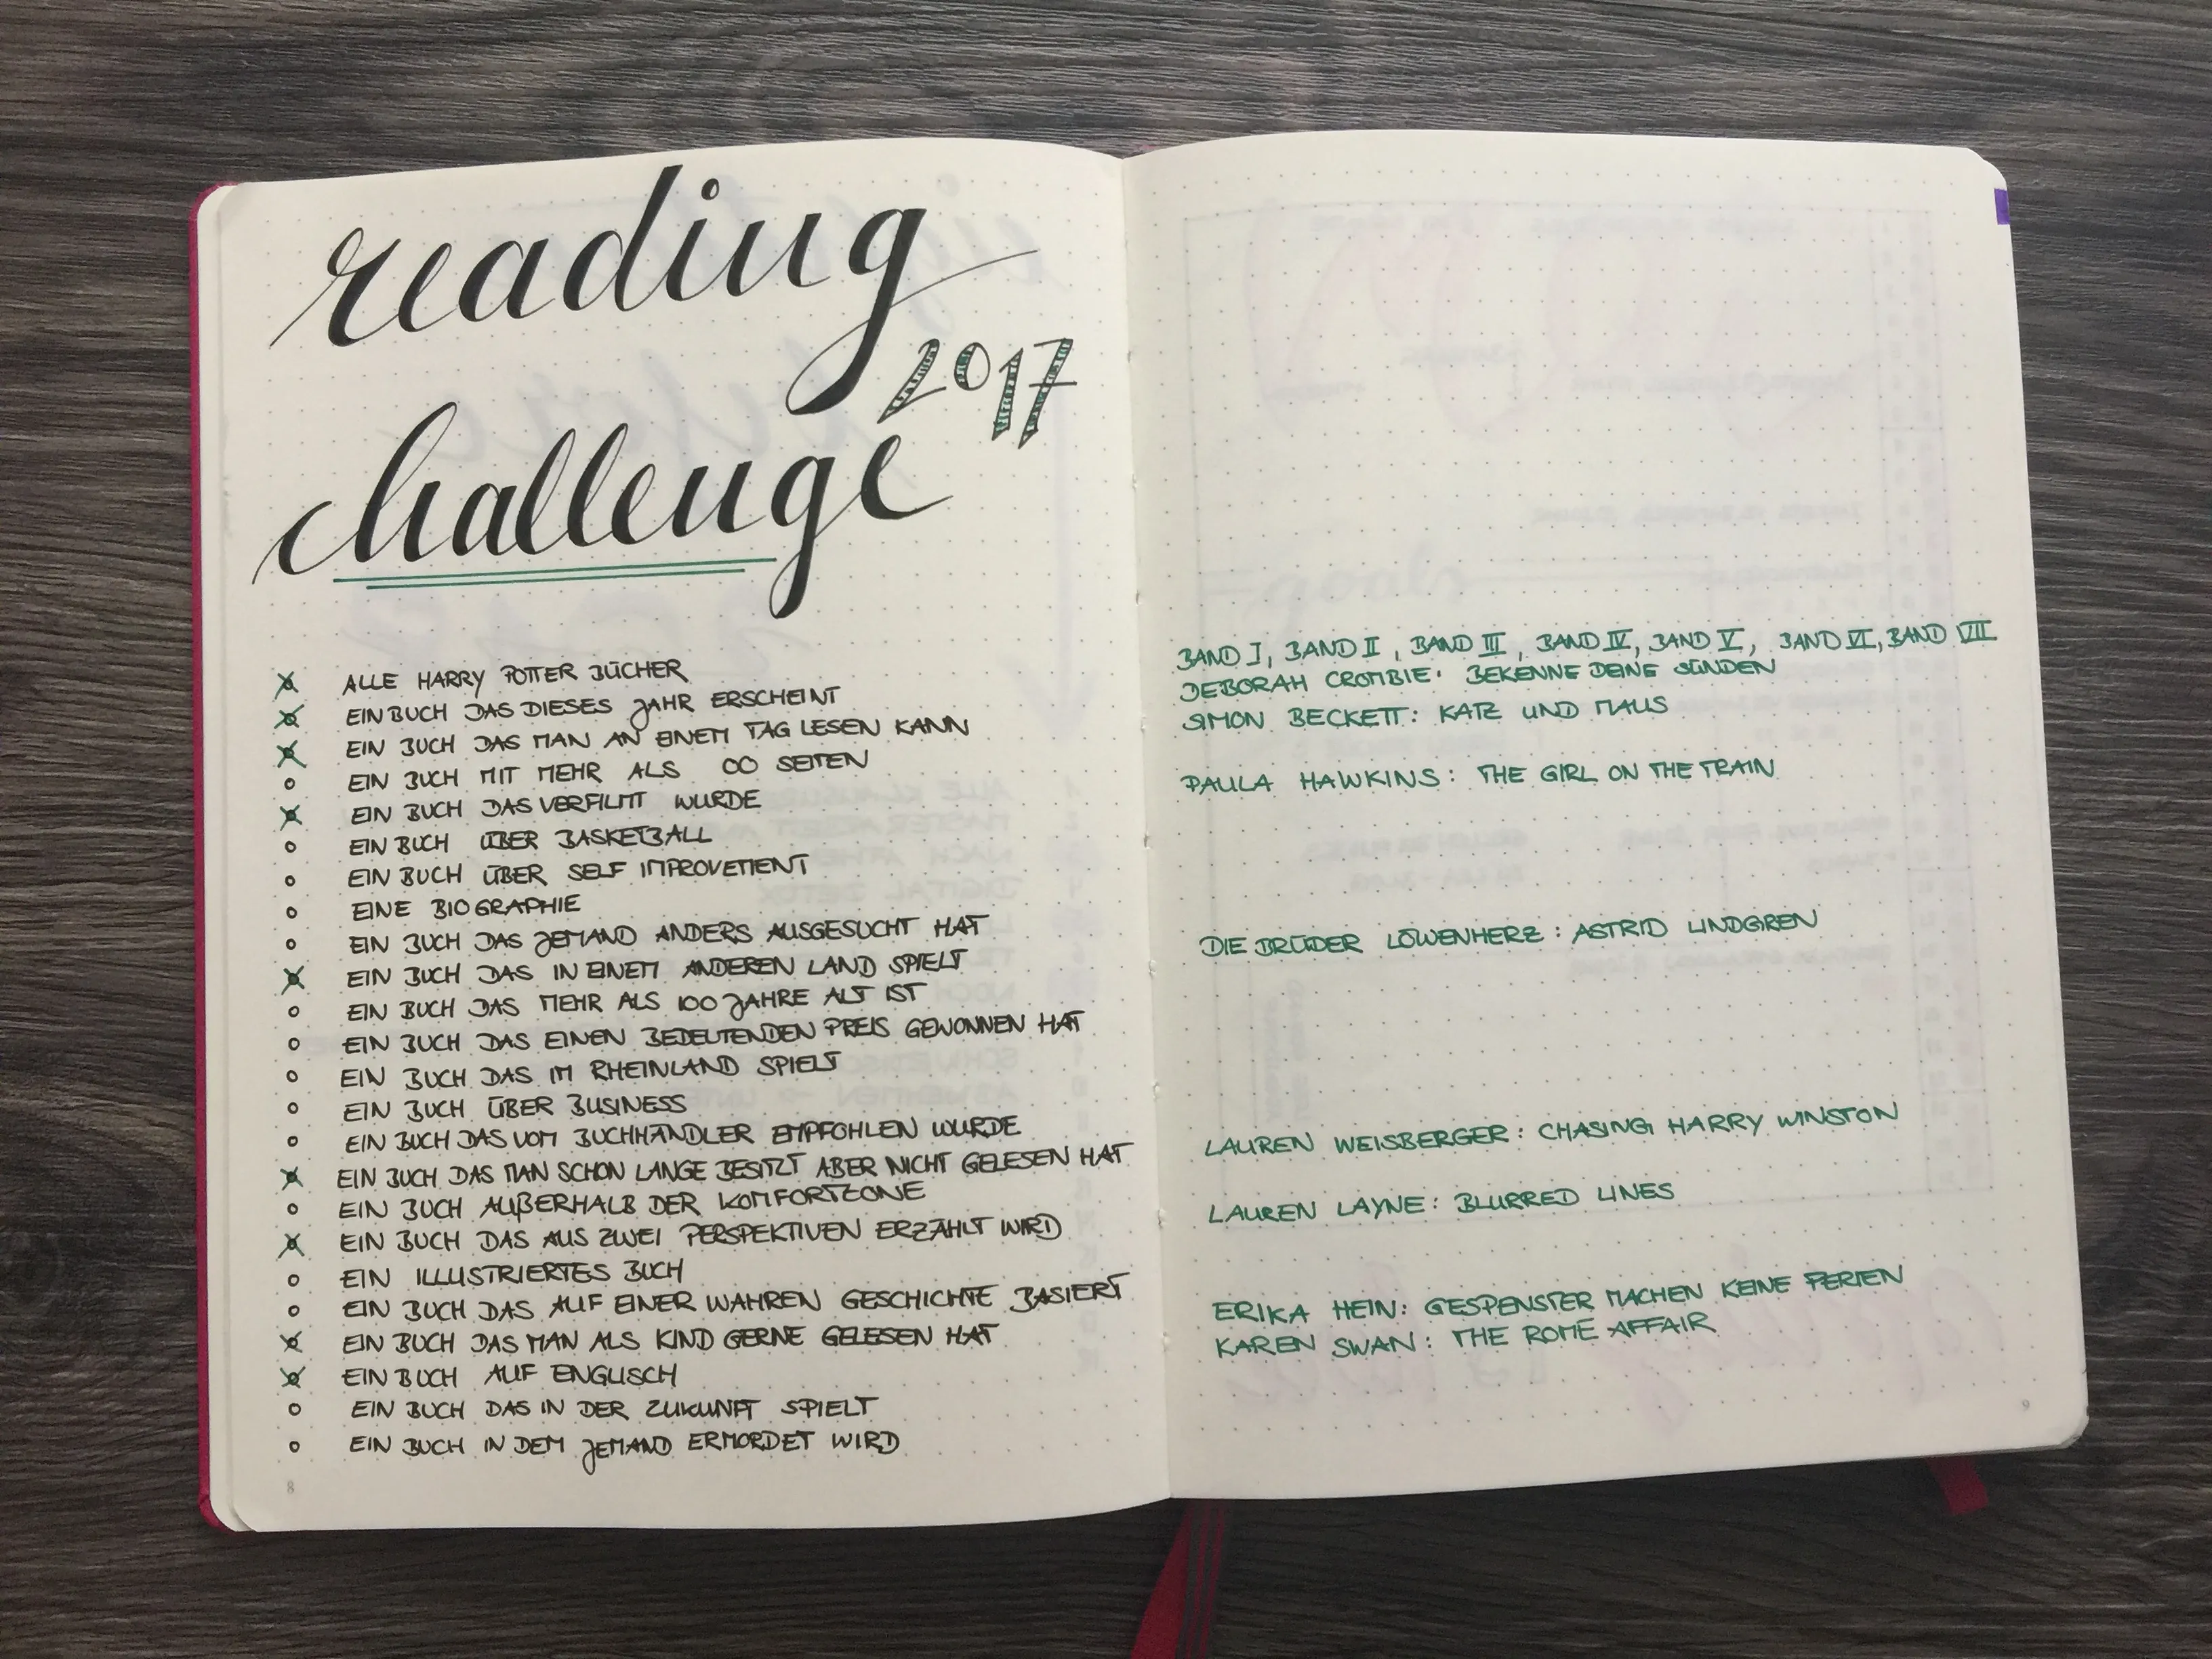 reading
2017
challenge
ALLE HARRY POTTER BÜCHER
EIN BUCH DAS DIESES JAHR ERSCHEINT
EIN BUCH DAS MAN AN EINEM TAG LESEN KANN
EIN BUCH MIT MEHR ALS 00 SEITEN
EIN BUCH DAS VERFILMT WURDE
EIN BUCH ÜBER BASKETBALL
EIN BUCH ÜBER SELF IMPROVEMENT
EINE BIOGRAPHIE
EIN BUCH DAS JEMAND ANDERS AUSGESUCHT HAT
EIN BUCH DAS IN EINEM ANDEREN LAND SPIELT
EIN BUCH DAS MEHR ALS 100 JAHRE ALT IST
EIN BUCH DAS EINEN BEDEUTENDEN PREIS GEWONNEN HAT
EIN BUCH DAS IM RHEINLAND SPIELT
EIN BUCH ÜBER BUSINESS
EIN BUCH DAS VOM BUCHHÄNDLER EMPFOHLEN WURDE
EIN BUCH DAS MAN SCHON LANGE BESITZT ABER NICHT GELESEN HAT
EIN BUCH AUßERHALB DER KOMFORTZONE
EIN BUCH DAS AUS ZWEI PERSPEKTIVEN ERZÄHLT WIRD
EIN ILLUSTRIERTES BUCH
EIN BUCH DAS AUF EINER WAHREN GESCHICHTE BASIERT
EIN BUCH DAS MAN ALS KIND GERNE GELESEN HAT
EIN BUCH AUF ENGLISCH
EIN BUCH DAS IN DER ZUKUNFT SPIELT
EIN BUCH IN DEM JEMAND ERMORDET WIRD
8
BAND I, BAND II, BAND III, BAND IV, BAND V, BAND VI, BAND VII
DEBORAH CROMBIE: BEKENNE DEINE SÜNDEN
SIMON BECKETT: KATZ UND MAUS
PAULA HAWKINS: THE GIRL ON THE TRAIN
DIE BRÜDER LÖWENHERZ: ASTRID LINDGREN
LAUREN WEISBERGER: CHASING HARRY WINSTON
LAUREN LAYNE: BLURRED LINES
ERIKA HEIN: GESPENSTER MACHEN KEINE FERIEN
KAREN SWAN: THE ROME AFFAIR
9